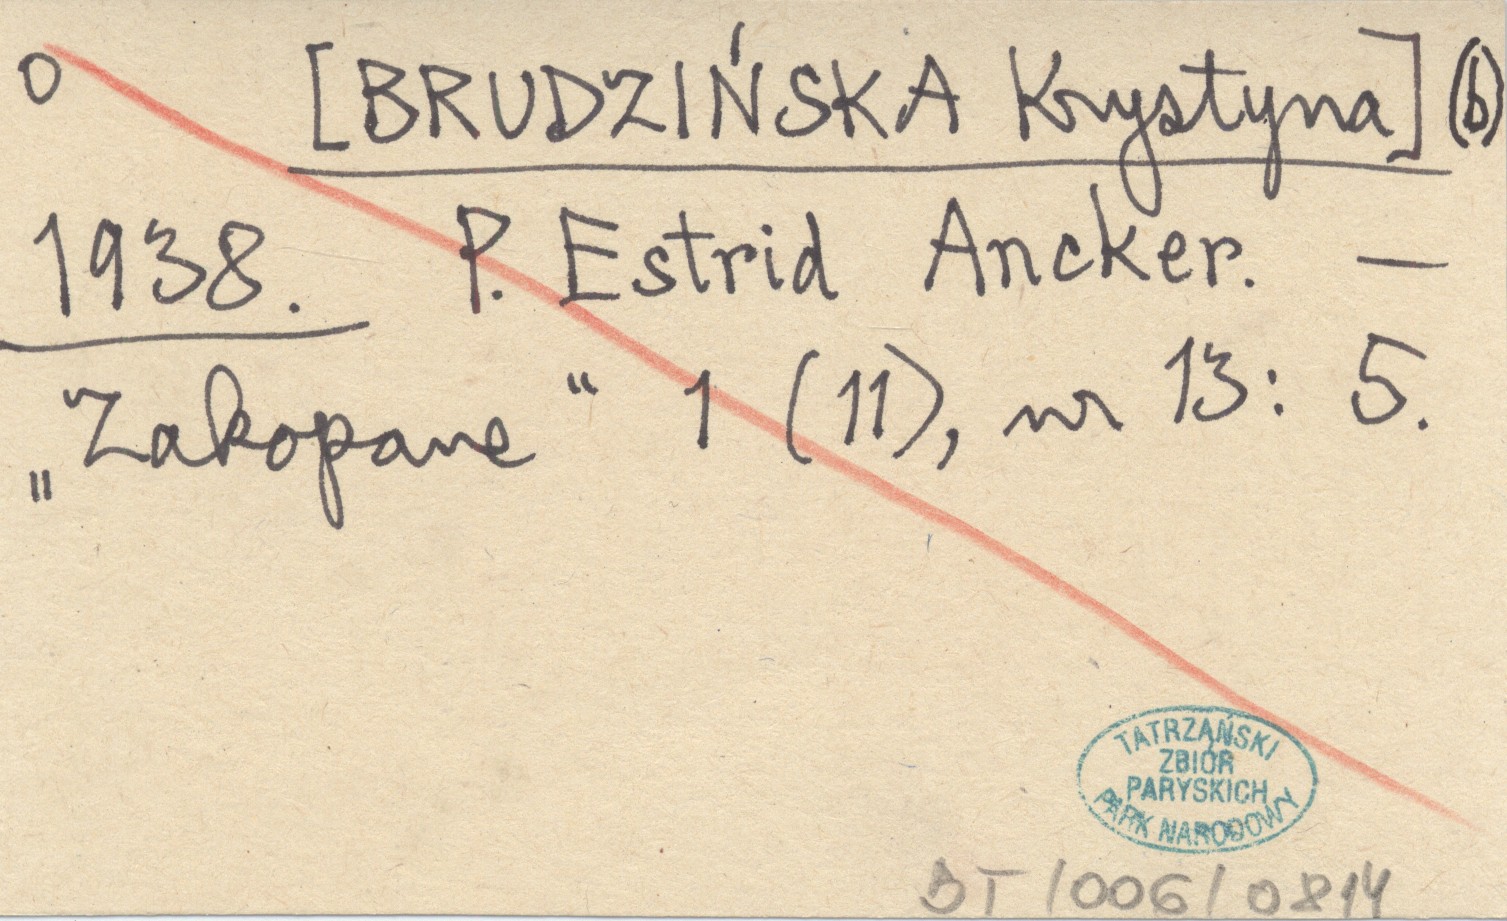 o [BRUDZIŃSKA Krystyna] (b)
1938. P. Estrid Ancker. —
„Zakopane“ 1 (11), nr 13: 5.
TATRZAŃSKI
ZBIÓR
PARYSKICH
PARK NARODOWY
BT/006/0814